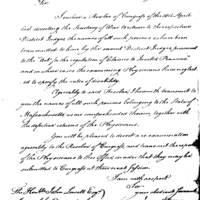 Sir
I enclose a Resolve of Congress of the 21st April
last directing the Secretary of War to return to the respective
District Judges the names of all such persons as have
been transmitted to him by the several District Judges, pursuant
to the "Act, for the regulation of Claims to Invalid Pensions"
and in whose cases the examining Physicians have neglect
ed to specify the rates of disability.
Agreeably to said Resolve, I have to transmit to
you the names of all such persons belonging to the State of
Massachusetts as are comprehended therein together with
the defective returns of the Physicians.
You will be pleased to direct a re-examination
agreeably to the Resolve of Congress and transmit the report
of the Physicians to this Office in order that they may be
submitted to Congress at their next Session.
I am with respect
Sir
your obedient servant
The Honble John Lowell Esqr